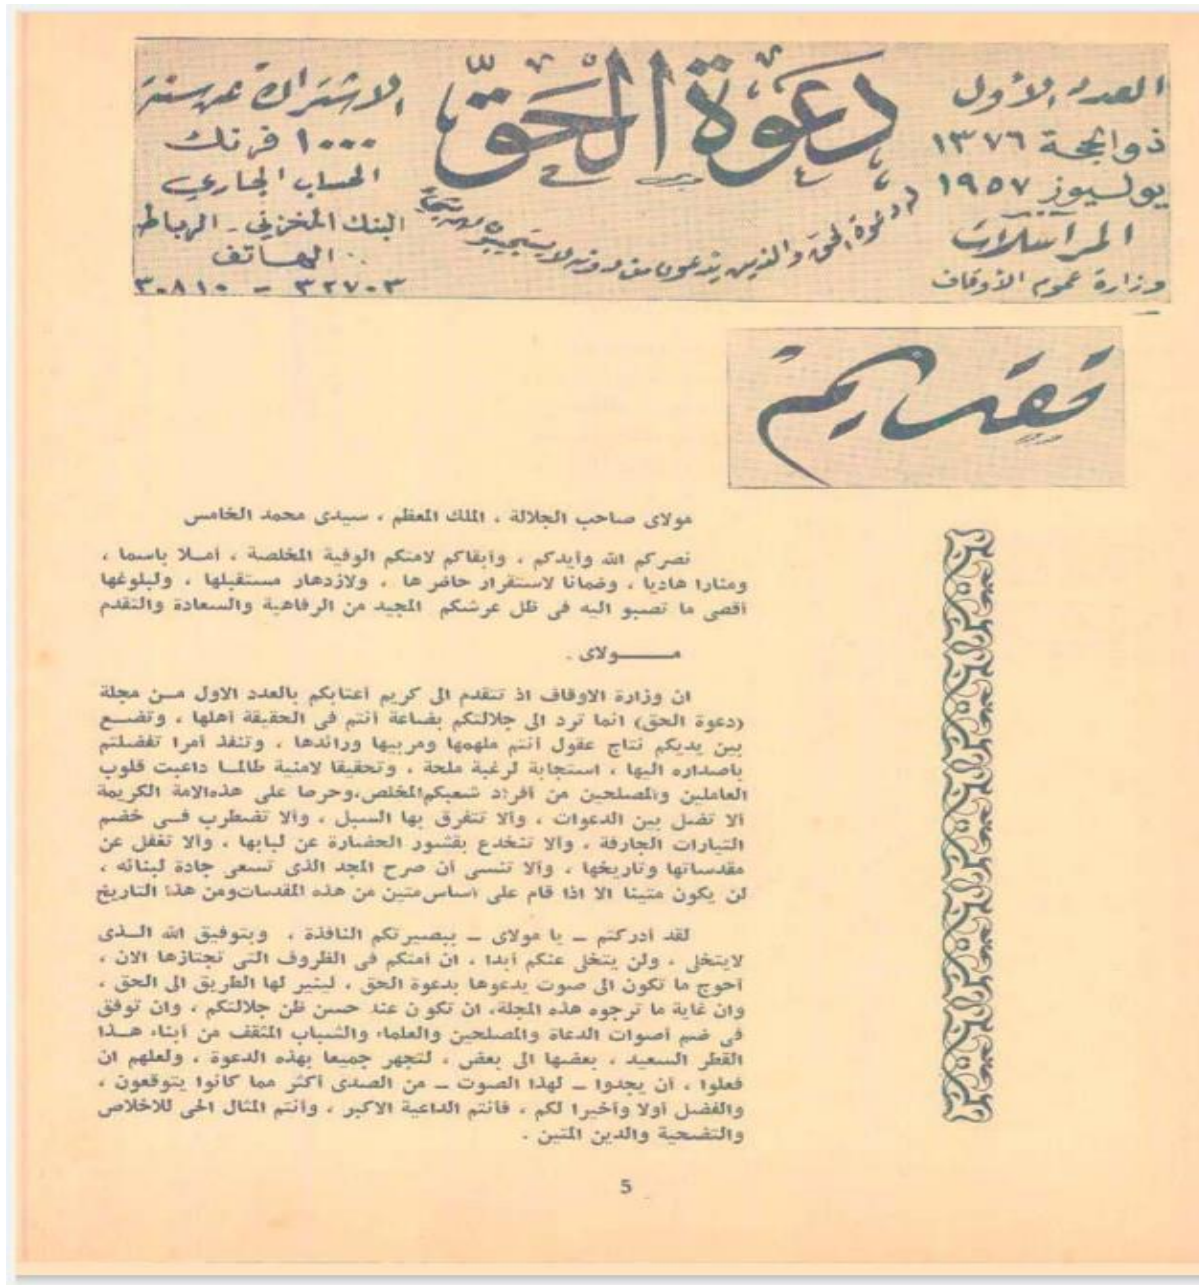 العدد الأول
ذو الحجة ١٣٧٦
يوليوز ١٩٥٧
المراسلات
وزارة عموم الأوقاف
دعوة الحق
له دعوة الحق والذين يدعون من دونه لا يستجيبون لهم بشيء
الاشتراك عن سنة
١٠٠٠ فرنك
الحساب الجاري
البنك المخزني - الرباط
الهاتف
٣٢٧٠٣ - ٣٠٨١٠
تقديم
مولاى صاحب الجلالة ، الملك المعظم ، سيدى محمد الخامس
نصركم الله وأيدكم ، وأبقاكم لامتكم الوفية المخلصة ، أمـلا باسما ،
ومنارا هاديا ، وضمانا لاستقرار حاضرها ، ولازدهار مستقبلها ، ولبلوغها
أقصى ما تصبو اليه فى ظل عرشكم المجيد من الرفاهية والسعادة والتقدم
مـــــولاى .
ان وزارة الاوقاف اذ تتقدم الى كريم أعتابكم بالعدد الاول مـن مجلة
(دعوة الحق) انما ترد الى جلالتكم بضاعة أنتم فى الحقيقة أهلها ، وتضـع
بين يديكم نتاج عقول أنتم ملهمها ومربيها ورائدها ، وتنفذ أمرا تفضلتم
باصداره اليها ، استجابة لرغبة ملحة ، وتحقيقا لامنية طالمـا داعبت قلوب
العاملين والمصلحين من أفراد شعبكم المخلص،وحرصا على هذه الامة الكريمة
ألا تضل بين الدعوات ، وألا تتفرق بها السبل ، وألا تضطرب فـى خضم
التيارات الجارفة ، وألا تنخدع بقشور الحضارة عن لبابها ، وألا تغفل عن
مقدساتها وتاريخها ، وألا تنسى أن صرح المجد الذى تسعى جادة لبنائه ،
لن يكون متينا الا اذا قام على أساس متين من هذه المقدسات ومن هذا التاريخ
لقد أدركتم ــ يا مولاى ــ ببصيرتكم النافذة ، وبتوفيق الله الـذى
لايتخلى ، ولن يتخلى عنكم أبدا ، ان أمتكم فى الظروف التى تجتازها الان ،
أحوج ما تكون الى صوت يدعوها بدعوة الحق ، لينير لها الطريق الى الحق ،
وان غاية ما ترجوه هذه المجلة، ان تكون عند حسن ظن جلالتكم ، وان توفق
فى ضم أصوات الدعاة والمصلحين والعلماء والشباب المثقف من أبناء هـذا
القطر السعيد ، بعضها الى بعض ، لتجهر جميعا بهذه الدعوة ، ولعلهم ان
فعلوا ، أن يجدوا ــ لهذا الصوت ــ من الصدى أكثر مما كانوا يتوقعون ،
والفضل أولا وأخيرا لكم ، فأنتم الداعية الاكبر ، وأنتم المثال الحى للاخلاص
والتضحية والدين المتين .
5